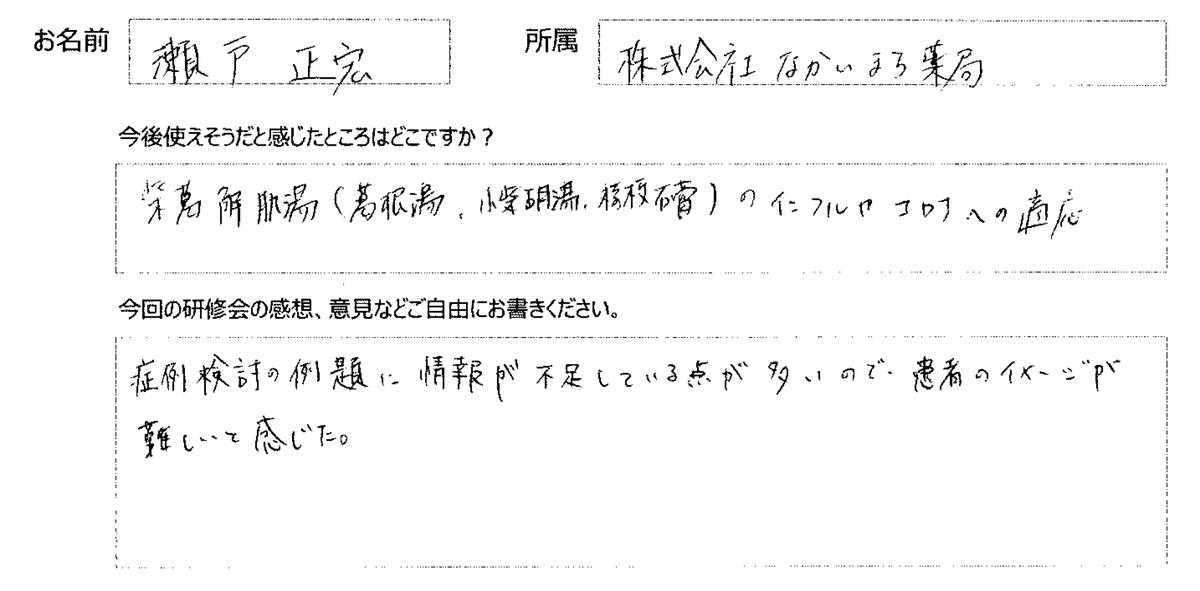 お名前 瀬戸 正宏 所属 株式会社 なかいまち薬局
今後使えそうだと感じたところはどこですか？
柴葛解肌湯(葛根湯、小柴胡湯、桔梗石膏)のインフルやコロナへの適応
今回の研修会の感想、意見などご自由にお書きください。
症例検討の例題に情報が不足している点が多いので、患者のイメージが
難しいと感じた。